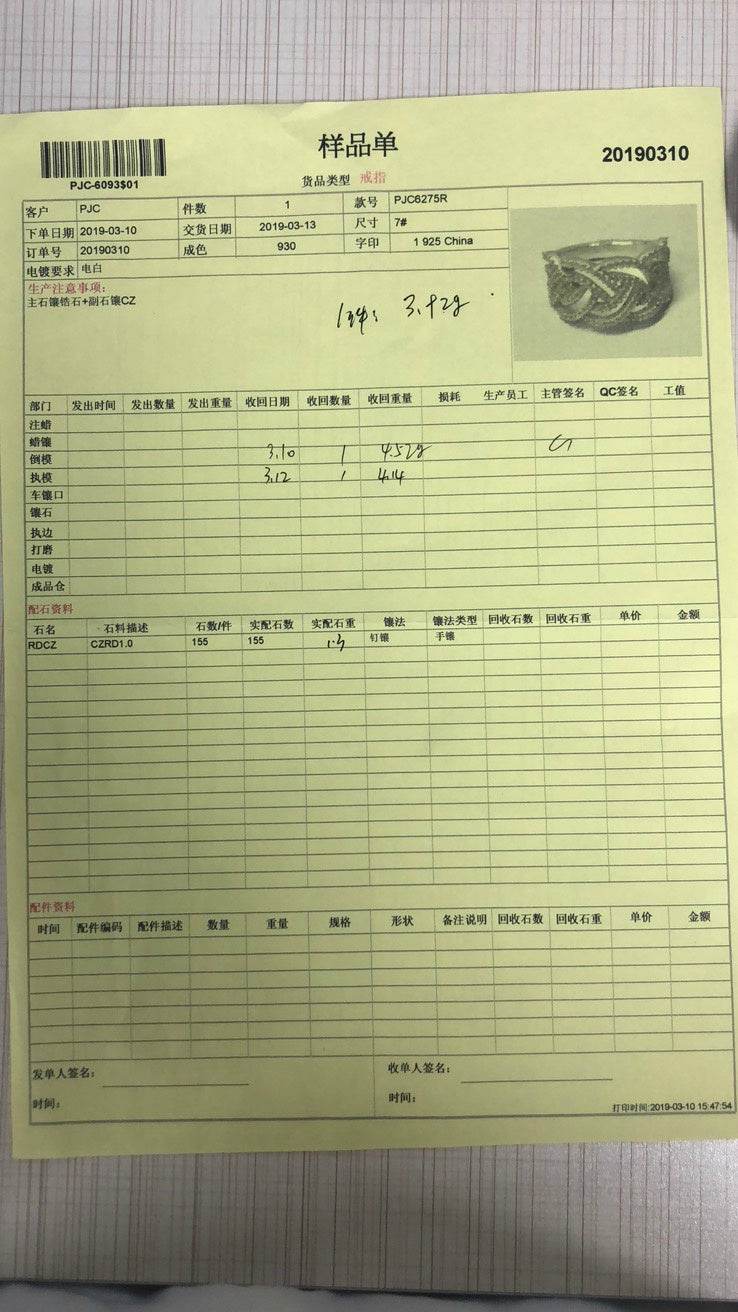 样品单
20190310
PJC-6093$01
货品类型 戒指
客户 PJC 件数 1 款号 PJC6275R
下单日期 2019-03-10 交货日期 2019-03-13 尺寸 7#
订单号 20190310 成色 930 字印 1 925 China
电镀要求 电白
生产注意事项:
主石镶锆石+副石镶CZ
部门 发出时间 发出数量 发出重量 收回日期 收回数量 收回重量 损耗 生产员工 主管签名 QC签名 工值
注蜡
蜡镶
倒模 3.10 1 4.52g
执模 3.12 1 4.14
车镶口
镶石
执边
打磨
电镀
成品仓
配石资料
石名 石料描述 石数/件 实配石数 实配石重 镶法 镶法类型 回收石数 回收石重 单价 金额
RDCZ CZRD1.0 155 155 钉镶 手镶
配件资料
时间 配件编码 配件描述 数量 重量 规格 形状 备注说明 回收石数 回收石重 单价 金额
发单人签名: 收单人签名:
时间: 时间:
打印时间:2019-03-10 15:47:54